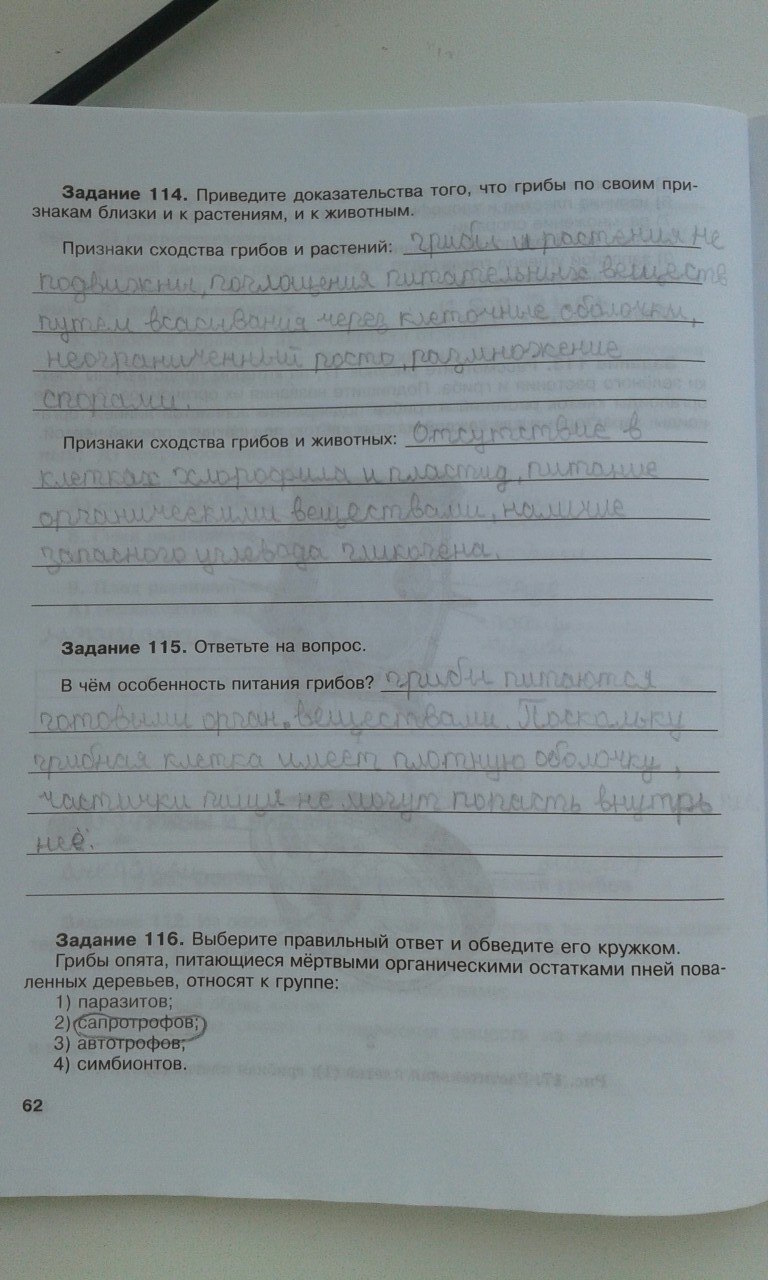 Задание 114. Приведите доказательства того, что грибы по своим при-
знакам близки и к растениям, и к животным.
Признаки сходства грибов и растений: грибы и растения не
подвижны, поглощения питательных веществ
путём всасывания через клеточные оболочки,
неограниченный роста, размножение
спорами.
Признаки сходства грибов и животных: Отсутствие в
клетках хлорофила и пластид, питание
органическими веществами, наличие
запасного углевода гликогена.
Задание 115. Ответьте на вопрос.
В чём особенность питания грибов? грибы питаются
готовыми орган. веществами. Поскольку
грибная клетка имеет плотную оболочку,
частички пищи не могут попасть внутрь
неё.
Задание 116. Выберите правильный ответ и обведите его кружком.
Грибы опята, питающиеся мёртвыми органическими остатками пней пова-
ленных деревьев, относят к группе:
1) паразитов;
2) сапротрофов;
3) автотрофов;
4) симбионтов.
62